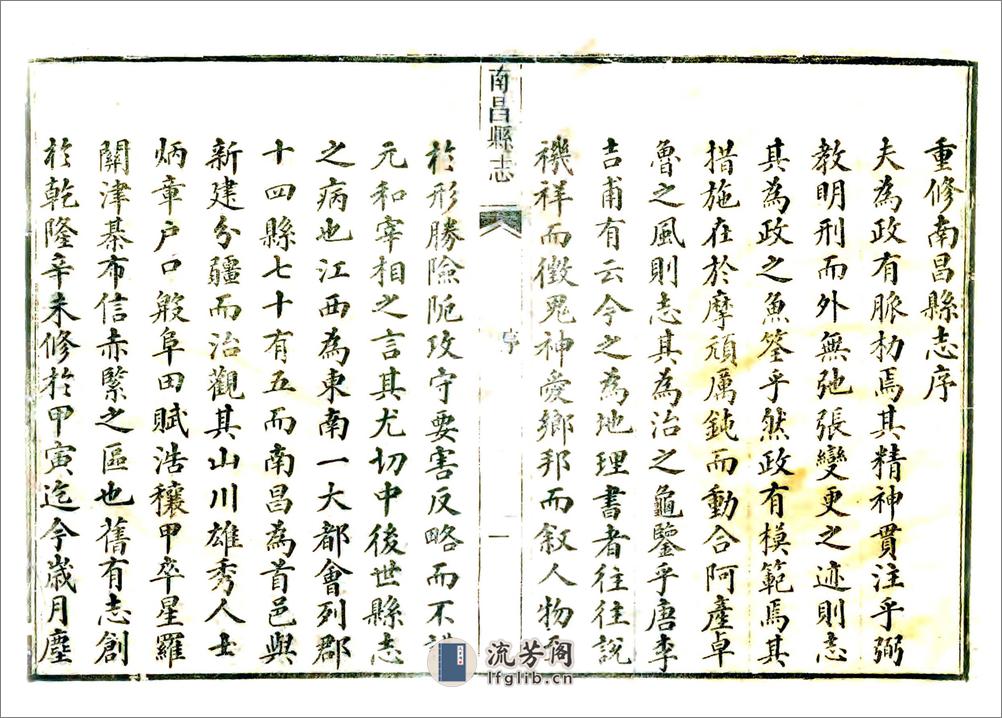 重修南昌縣志序
夫為政有脈朸焉其精神貫注乎弼
教明刑而外無弛張變更之迹則志
其為政之魚筌乎然政有模範焉其
措施在於摩頑厲鈍而動合阿產卓
魯之風則志其為治之龜鑒乎唐李
吉甫有云今之為地理書者往往說
禨祥而徵鬼神愛鄉邦而叙人物而
南昌縣志
序
一
於形勝險阨攻守要害反略而不
元和宰相之言其尤切中後世縣志
之病也江西為東南一大都會列郡
十四縣七十有五而南昌為首邑與
新建分疆而治觀其山川雄秀人士
炳章户口殷阜田賦浩穰甲卒星羅
關津棊布信赤緊之區也舊有志創
於乾隆辛未修於甲寅迄今歲月塵
流芳阁
lfglib.cn